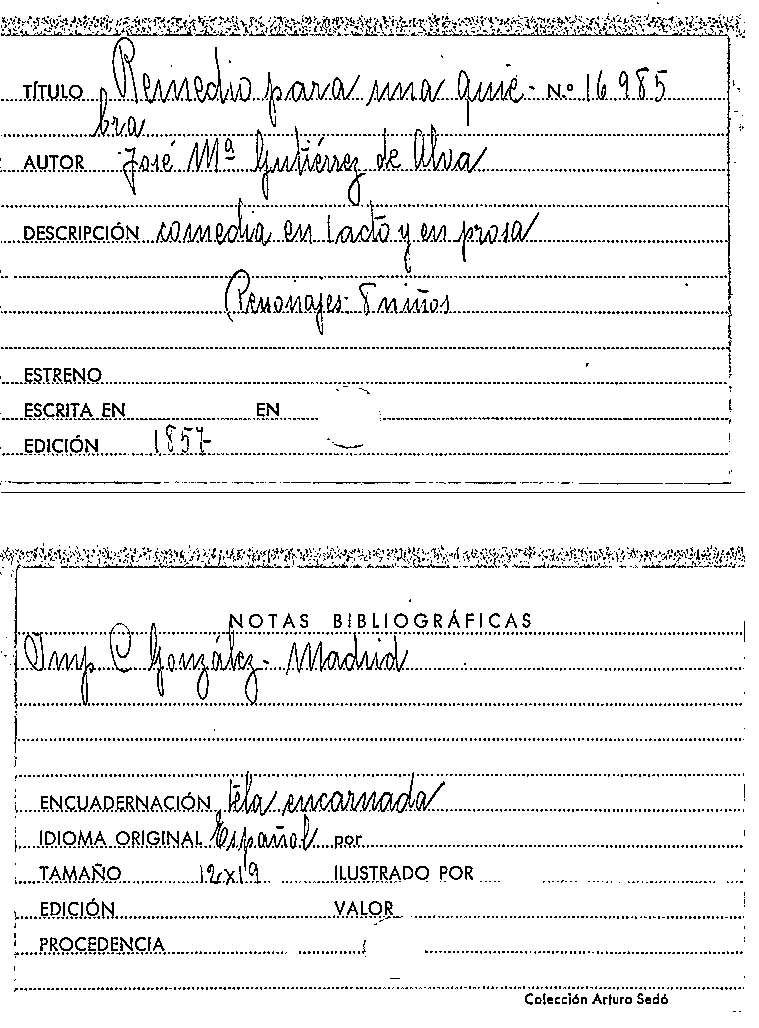 TÍTULO Remedio para una quie- N.º 16985
bra
AUTOR José Mª Gutiérrez de Alva
DESCRIPCIÓN comedia en 1 acto y en prosa
Personajes- 8 niños
ESTRENO
ESCRITA EN EN
EDICIÓN 1857
NOTAS BIBLIOGRÁFICAS
Imp C González- Madrid
ENCUADERNACIÓN tela encarnada
IDIOMA ORIGINAL Español por
TAMAÑO 12x19 ILUSTRADO POR
EDICIÓN VALOR
PROCEDENCIA
Colección Arturo Sedó